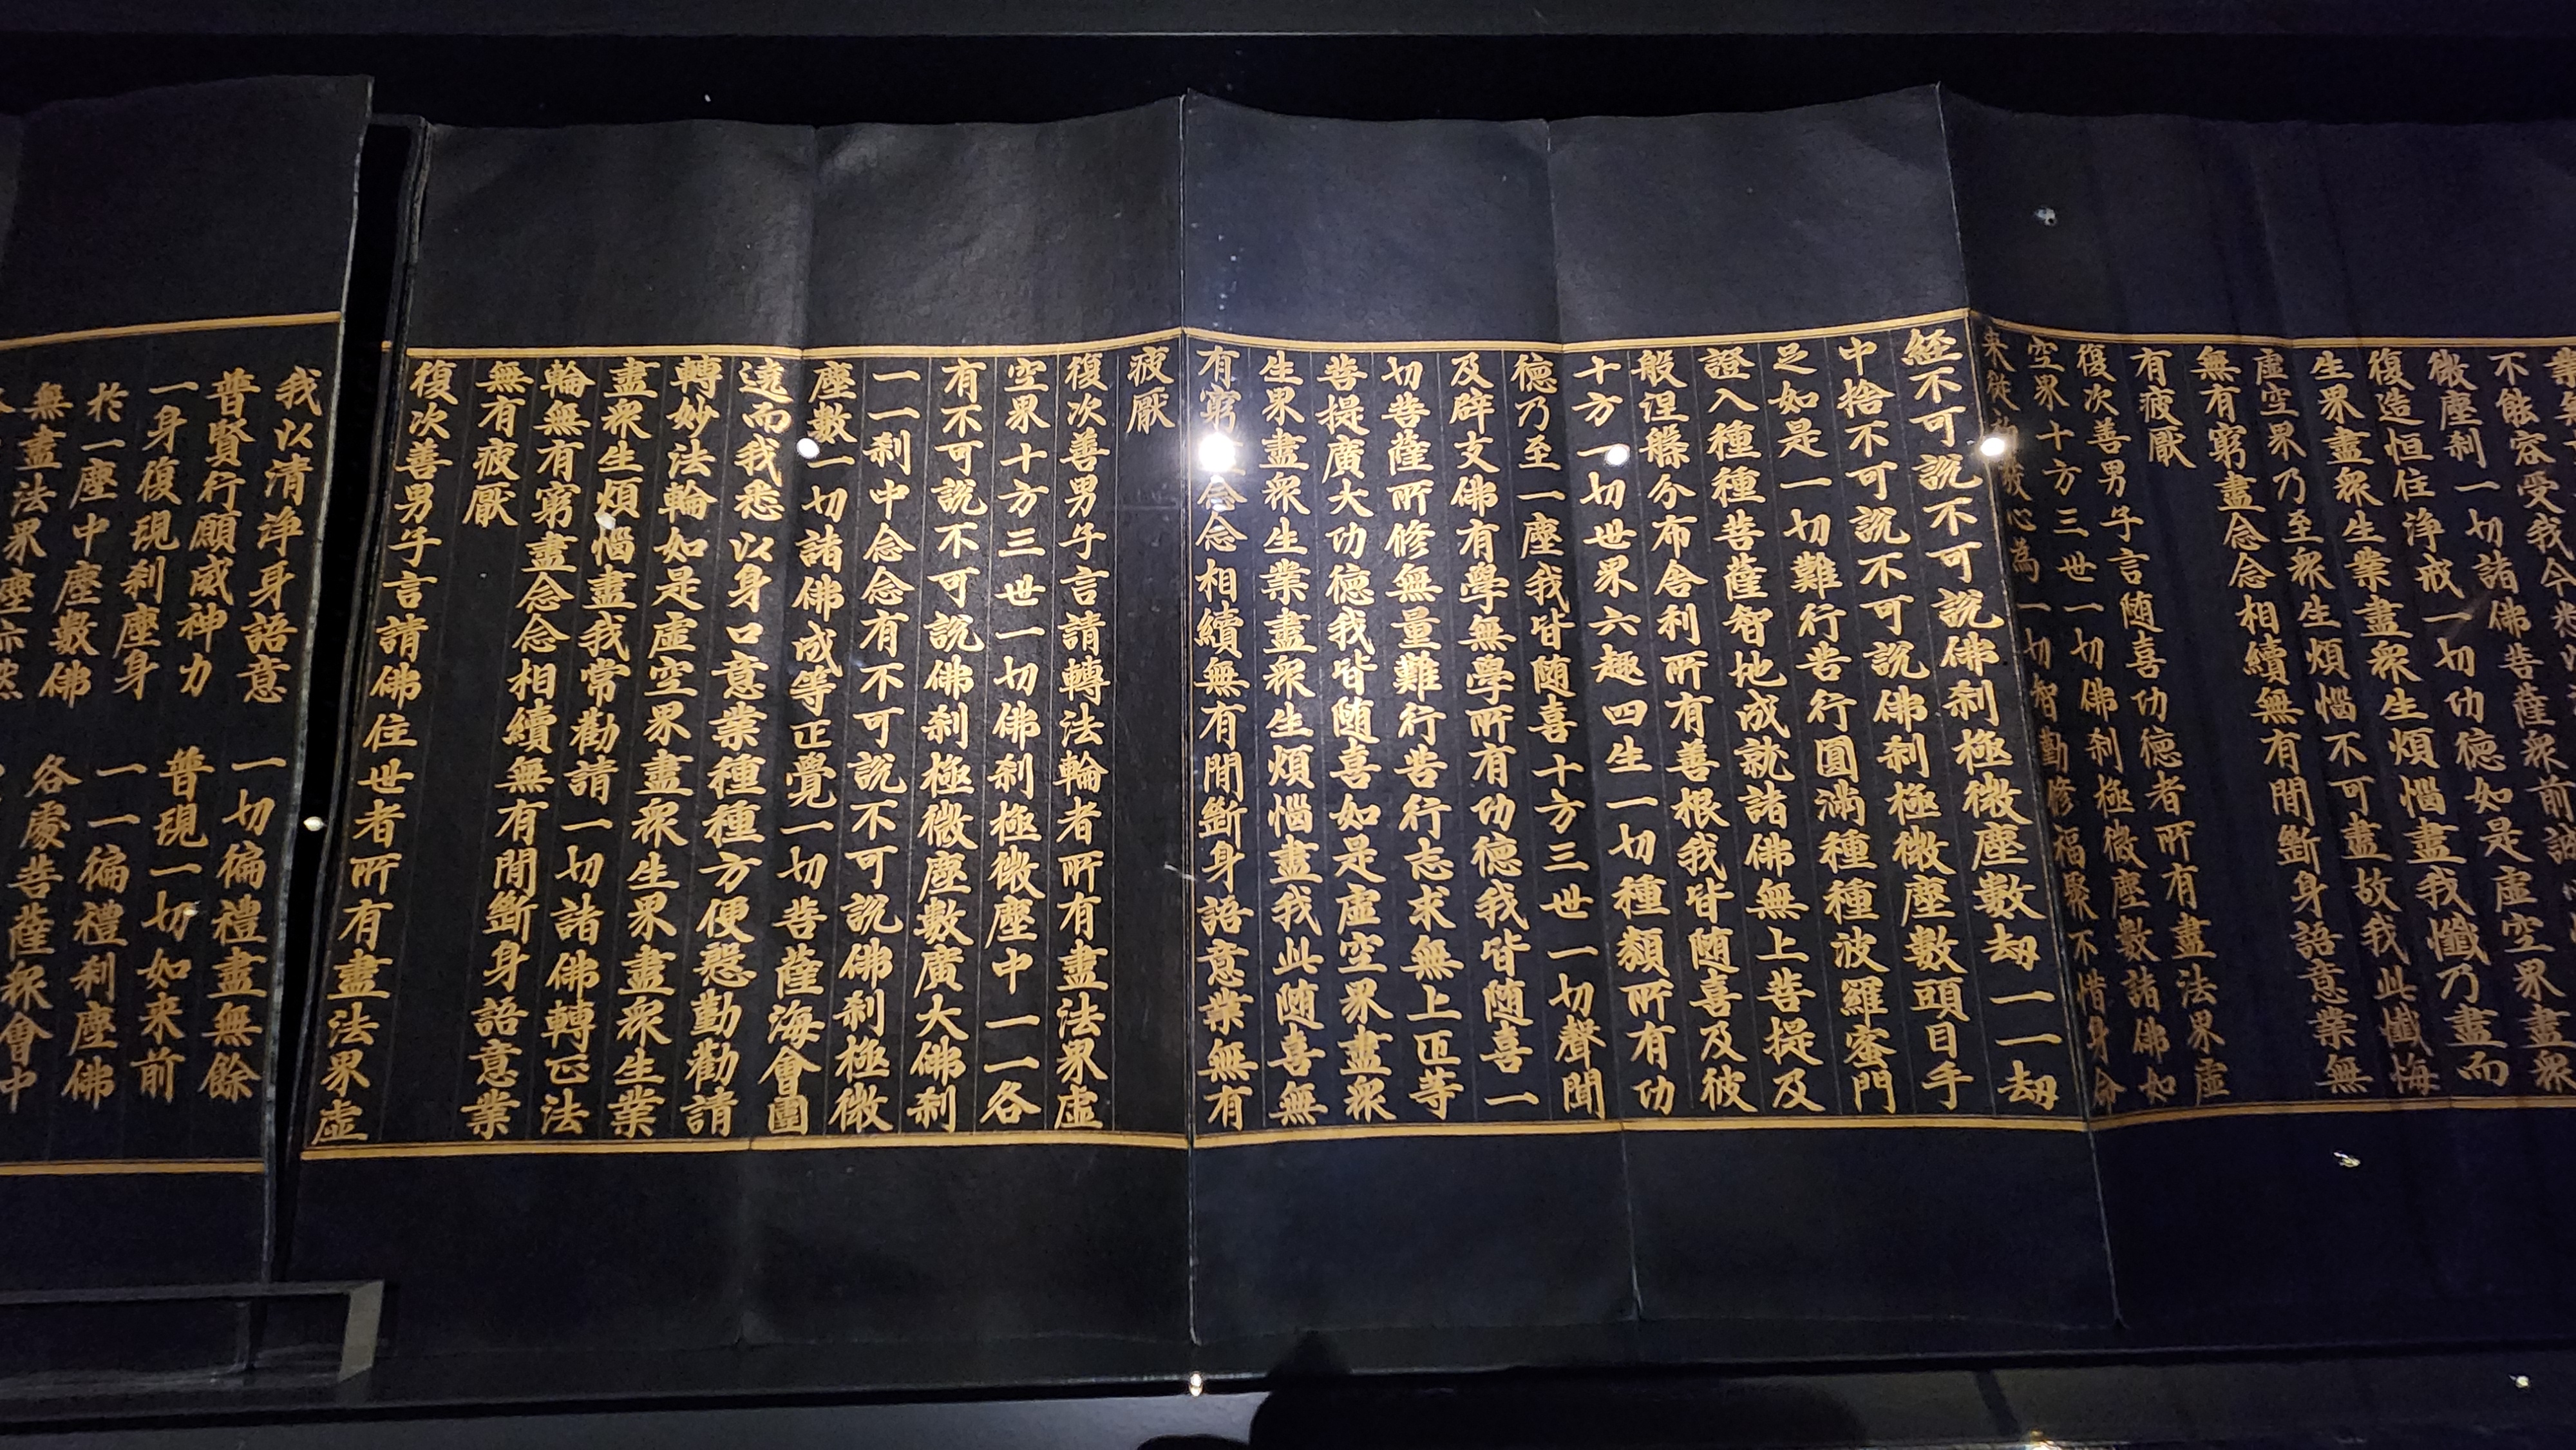 不能容受我今
微塵刹一切諸佛菩薩衆前誠
復造恒住淨戒一切功德如是虛空界盡衆
生界盡衆生業盡衆生煩惱盡我懺乃盡而
虛空界乃至衆生煩惱不可盡故我此懺悔
無有窮盡念念相續無有間斷身語意業無
有疲厭
復次善男子言随喜功德者所有盡法界虛
空界十方三世一切佛刹極微塵數諸佛如
来從發心為一切智勤修福聚不惜身命
經不可說不可說佛刹極微塵數劫一一劫
中捨不可說不可說佛刹極微塵數頭目手
足如是一切難行苦行圓滿種種波羅蜜門
證入種種菩薩智地成就諸佛無上菩提及
般涅槃分布舍利所有善根我皆随喜及彼
十方一切世界六趣四生一切種類所有功
德乃至一塵我皆随喜十方三世一切聲聞
及辟支佛有學無學所有功德我皆随喜一
切菩薩所修無量難行苦行志求無上正等
菩提廣大功德我皆随喜如是虛空界盡衆
生界盡衆生業盡衆生煩惱盡我此随喜無
有窮念念相續無有間斷身語意業無有
疲厭
復次善男子言請轉法輪者所有盡法界虛
空界十方三世一切佛刹極微塵中一一各
有不可說不可說佛刹極微塵數廣大佛刹
一一刹中念念有不可說不可說佛刹極微
塵數一切諸佛成等正覺一切菩薩海會圍
遶而我悉以身口意業種種方便慇勤勸請
轉妙法輪如是虛空界盡衆生界盡衆生業
盡衆生煩惱盡我常勸請一切諸佛轉正法
輪無有窮盡念念相續無有間斷身語意業
無有疲厭
復次善男子言請佛住世者所有盡法界虛
我以清淨身語意 一切徧禮盡無餘
普賢行願威神力 普現一切如来前
一身復現刹塵身 一一徧禮刹塵佛
於一塵中塵數佛 各處菩薩衆會中
無盡法界塵亦然